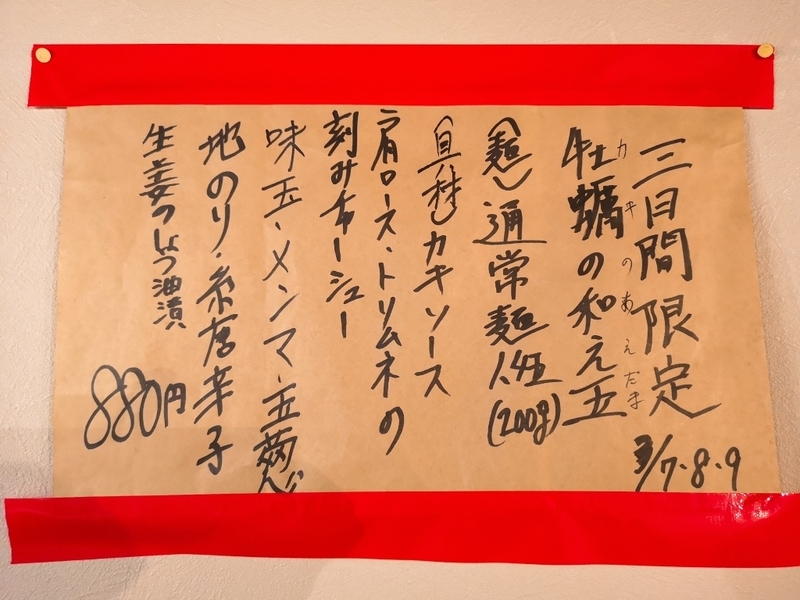 三日間限定
3/7・8・9
牡蠣の和え玉
カキのあえだま
(麺)通常麺
(200g)
(具材)カキソース
肩ロース・トリムネの
刻みチャーシュー
味玉・メンマ・玉葱
地のり・糸唐辛子
生姜のしょう油漬
880円